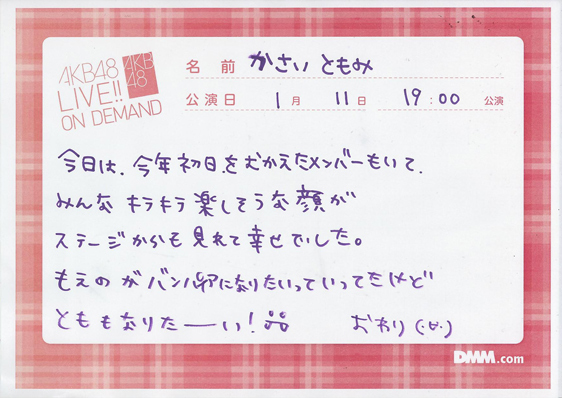 AKB48
LIVE!!
ON DEMAND
AKB
48
名前 かさい ともみ
公演日 1月 11日 19:00 公演
今日は、今年初日をむかえたメンバーもいて、
みんな キラキラ 楽しそうな 顔が
ステージからも 見れて 幸せでした。
もえのが バンパイアになりたいっていってたけど
とももなりたーーい! おわり (･∀･)
DMM.com